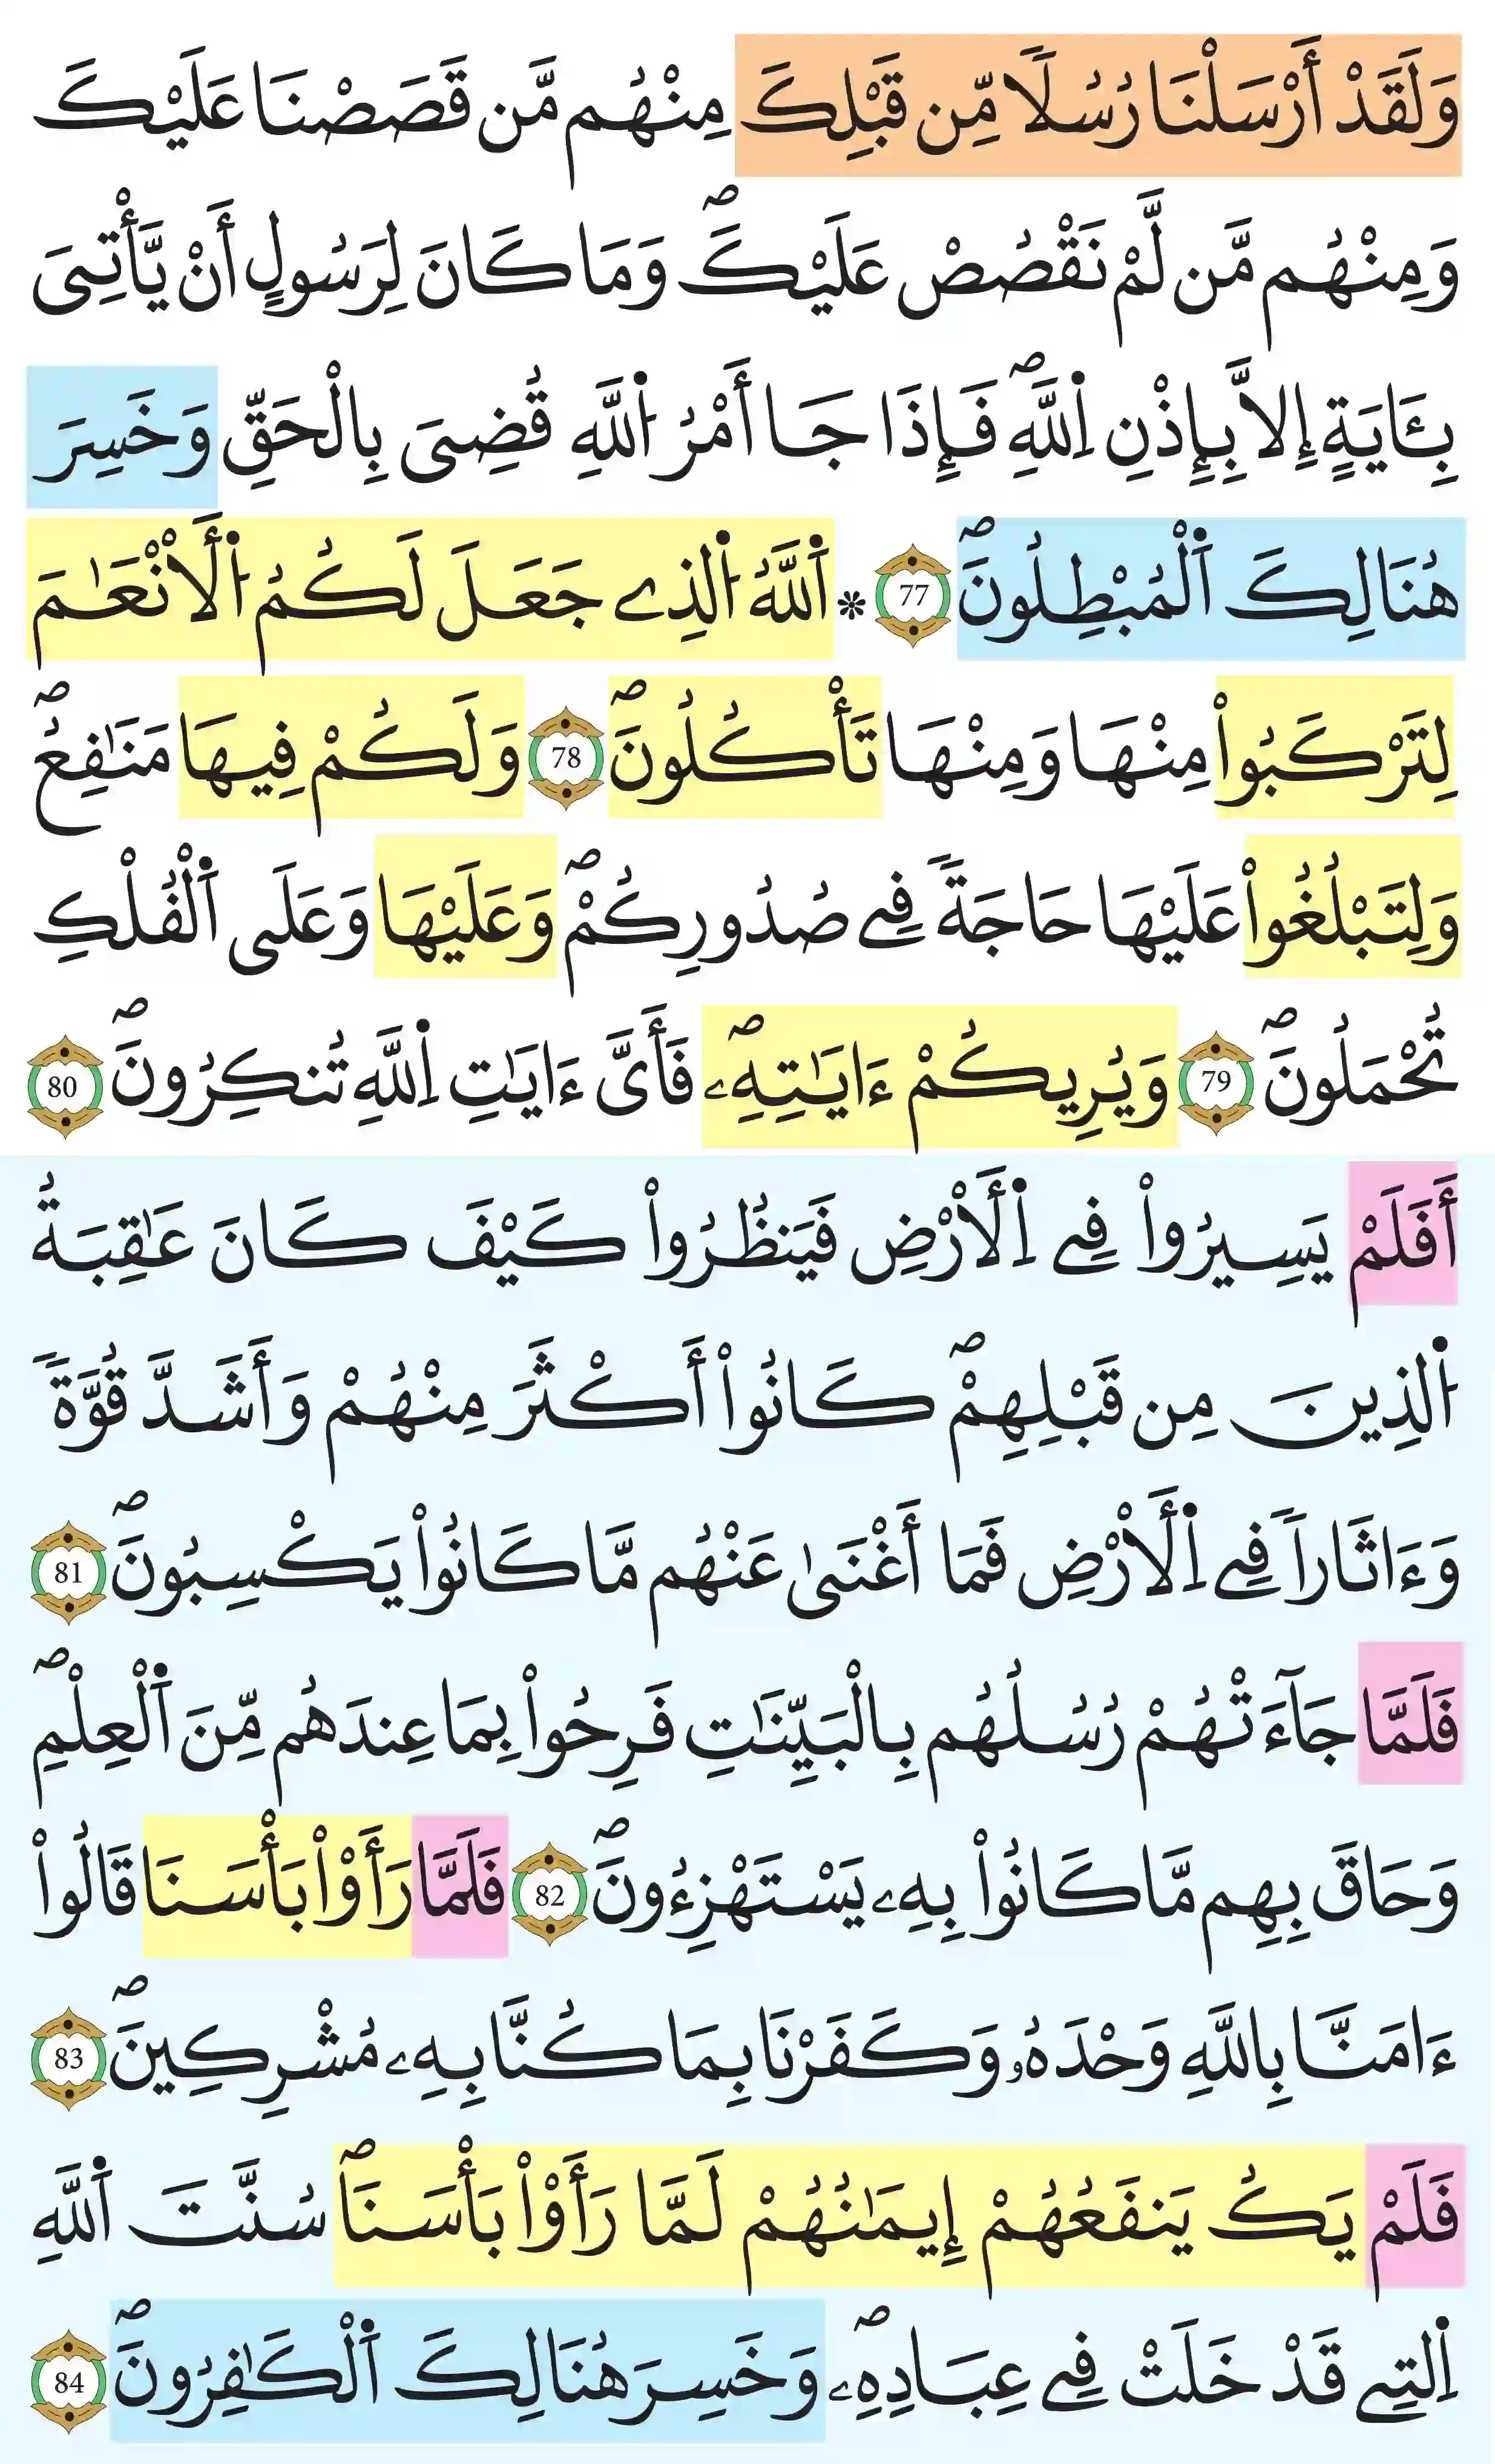 وَلَقَدْ أَرْسَلْنَا رُسُلاٗ مِّن قَبْلِكَ مِنْهُم مَّن قَصَصْنَا عَلَيْكَ
وَمِنْهُم مَّن لَّمْ نَقْصُصْ عَلَيْكَۖ وَمَا كَانَ لِرَسُولٍ أَنْ يَّأْتِىَ
بِـَٔايَةٍ إِلاَّ بِإِذْنِ اِ۬للَّهِۖ فَإِذَا جَا أَمْرُ اُ۬للَّهِ قُضِىَ بِالْحَقِّ وَخَسِرَ
هُنَالِكَ اَ۬لْمُبْطِلُونَۖ 77 * اَ۬للَّهُ اُ۬لذِے جَعَلَ لَكُمُ اُ۬لَأنْعَٰمَ
لِتَرْكَبُواْ مِنْهَا وَمِنْهَا تَأْكُلُونَۖ 78 وَلَكُمْ فِيهَا مَنَٰفِعُۖ
وَلِتَبْلُغُواْ عَلَيْهَا حَاجَةٗ فِے صُدُورِكُمْۖ وَعَلَيْهَا وَعَلَى اَ۬لْفُلْكِ
تُحْمَلُونَۖ 79 وَيُرِيكُمْ ءَايَٰتِهِۦۖ فَأَىَّ ءَايَٰتِ اِ۬للَّهِ تُنكِرُونَۖ 80
أَفَلَمْ يَسِيرُواْ فِے اِ۬لَأرْضِ فَيَنظُرُواْ كَيْفَ كَانَ عَٰقِبَةُ
اُ۬لذِينَ مِن قَبْلِهِمْۖ كَانُواْ أَكْثَرَ مِنْهُمْ وَأَشَدَّ قُوَّةٗ
وَءَاثَاراٗ فِے اِ۬لَأرْضِ فَمَا أَغْنَىٰ عَنْهُم مَّا كَانُواْ يَكْسِبُونَۖ 81
فَلَمَّا جَآءَتْهُمْ رُسُلُهُم بِالْبَيِّنَٰتِ فَرِحُواْ بِمَا عِندَهُم مِّنَ اَ۬لْعِلْمِۖ
وَحَاقَ بِهِم مَّا كَانُواْ بِهِۦ يَسْتَهْزِءُونَۖ 82 فَلَمَّا رَأَوْاْ بَأْسَنَا قَالُواْ
ءَامَنَّا بِاللَّهِ وَحْدَهُۥ وَكَفَرْنَا بِمَا كُنَّا بِهِۦ مُشْرِكِينَۖ 83
فَلَمْ يَكُ يَنفَعُهُمْ إِيمَٰنُهُمْ لَمَّا رَأَوْاْ بَأْسَنَاۖ سُنَّتَ اَ۬للَّهِ
اِ۬لتِے قَدْ خَلَتْ فِے عِبَادِهِۦۖ وَخَسِرَ هُنَالِكَ اَ۬لْكَٰفِرُونَۖ 84